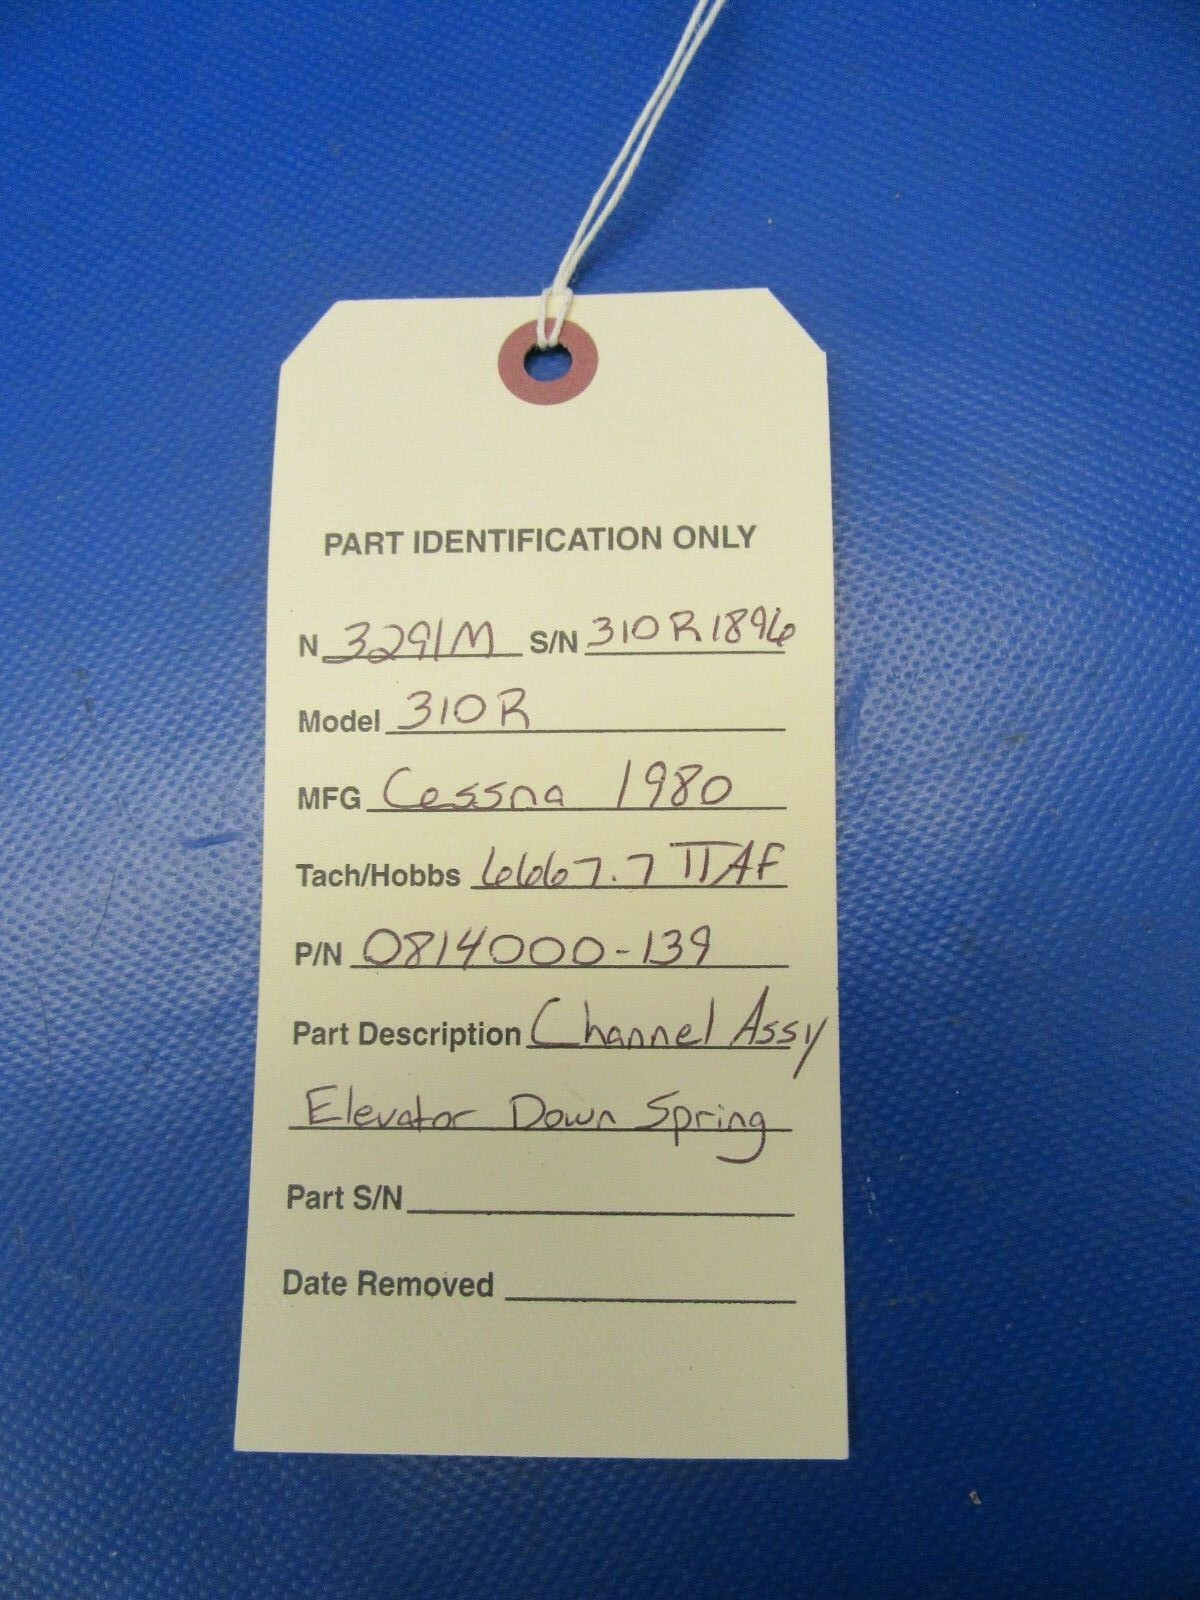 PART IDENTIFICATION ONLY
N 3291M S/N 310R1896
Model 310R
MFG Cessna 1980
Tach/Hobbs 6667.7 TTAF
P/N 0814000-139
Part Description Channel Assy
Elevator Down Spring
Part S/N
Date Removed